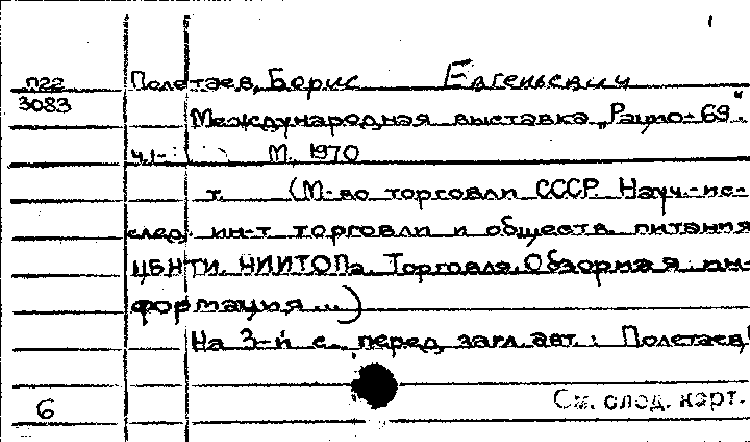 1
Полетаев, Борис Евгеньевич
3083
Международная выставка „Рацио-69“.
Ч.1- М. 1970
т. (М-во торговли СССР. Науч.-ис-
след. ин-т торговли и обществ. питания
ЦБНТИ НИИТОПа. Торговля. Обзорная ин-
формация...)
На 3-й с. перед загл. авт.: Полетаев
6
См. след. карт.